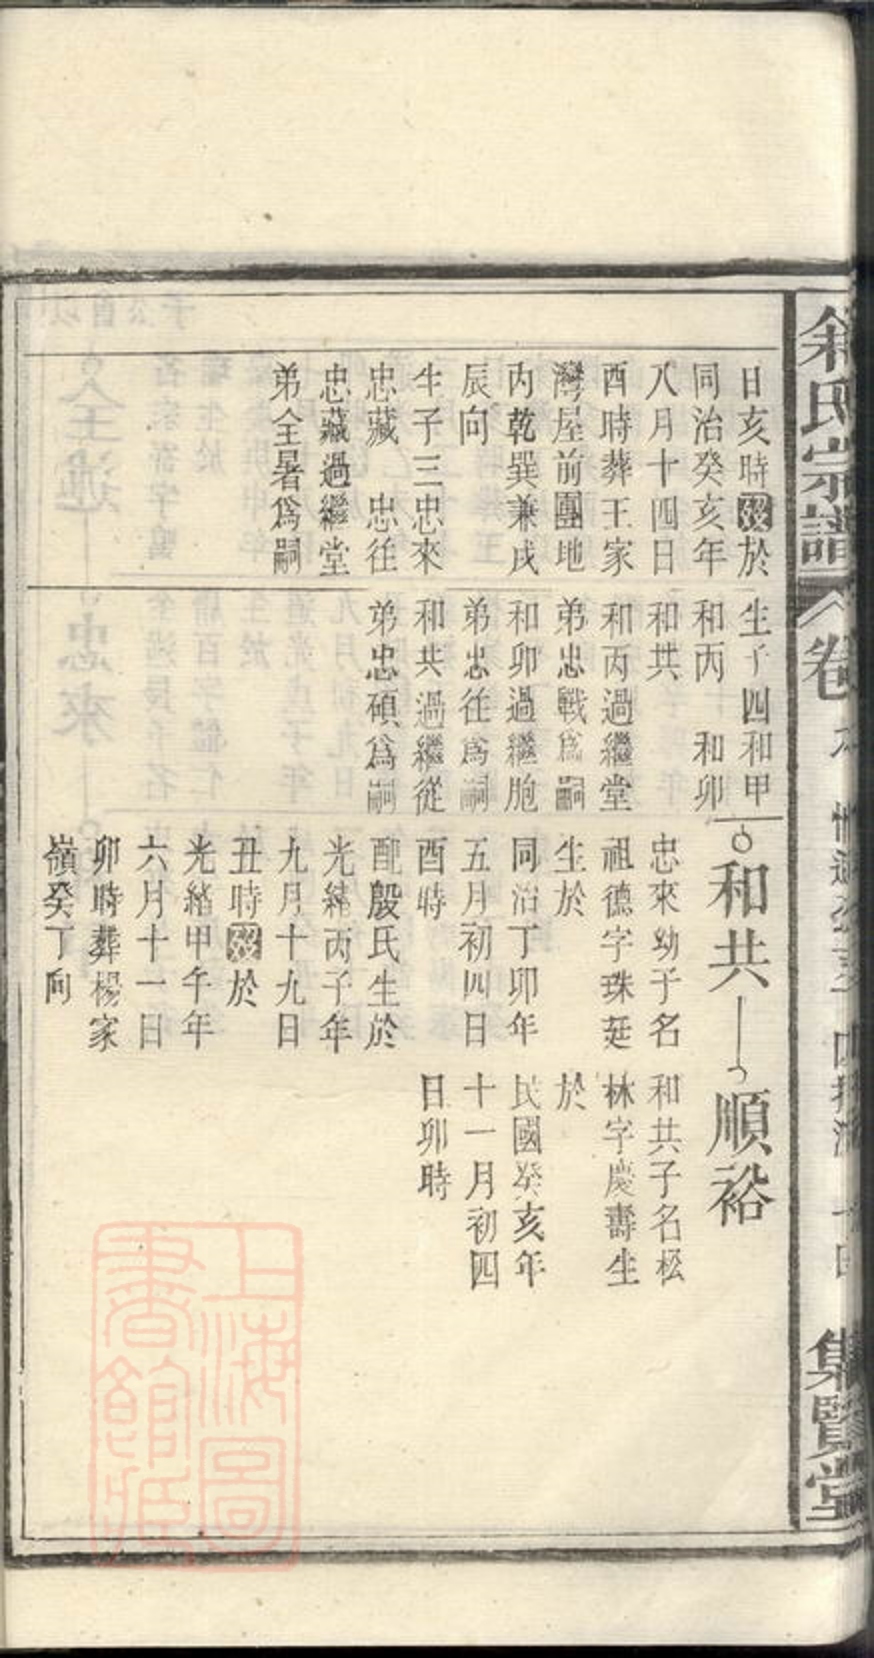 日亥時殁於
同治癸亥年
八月十四日
酉時葬王家
灣屋前團地
内乾巽兼戌
辰向
生子三忠來
忠藏 忠往
忠藏過繼堂
弟全暑爲嗣
生子四和甲
和丙 和卯
和共
和丙過繼堂
弟忠戰爲嗣
和卯過繼胞
弟忠往爲嗣
和共過繼從
弟忠碩爲嗣
和共
忠來幼子名
祖德字珠莚
生於
同治丁卯年
五月初四日
酉時
配殷氏生於
光緒丙子年
九月十九日
丑時殁於
光緒甲午年
六月十一日
卯時葬楊家
嶺癸丁向
順裕
和共子名松
林字慶壽生
於
民國癸亥年
十一月初四
日卯時
氏宗譜
卷
集賢堂
上海圖
書館藏